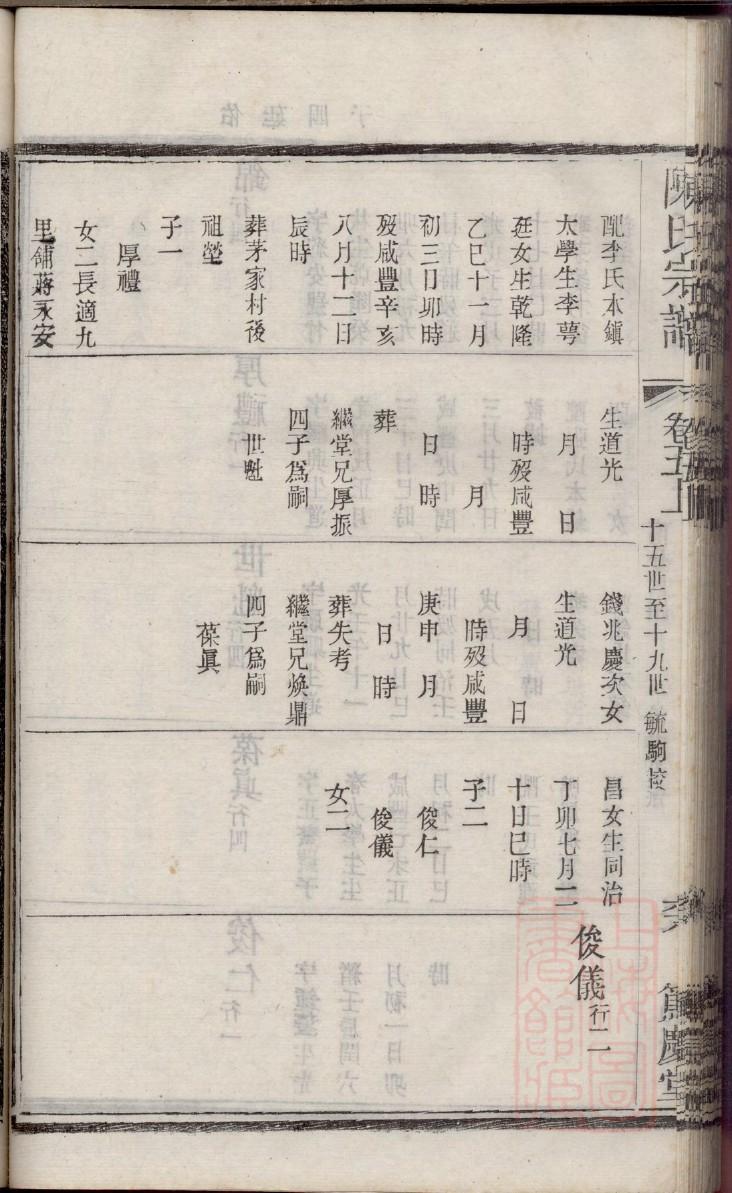 陳氏宗譜
卷五上
十五世至十九世
毓駒校
篤慶堂
配李氏本鎮
太學生李蕚
廷女生乾隆
乙巳十一月
初三日卯時
歿咸豐辛亥
八月十二日
辰時
葬茅家村後
祖塋
子一
厚禮
女二長適九
里舖蔣永安
生道光
月 日
時歿咸豐
月
日 時
葬
繼堂兄厚振
四子為嗣
世魁
錢兆慶次女
生道光
月 日
時歿咸豐
庚申 月
日 時
葬失考
繼堂兄煥鼎
四子為嗣
葆眞
昌女生同治
丁卯七月二
十日巳時
子二
俊仁
俊儀
女二
俊儀行二